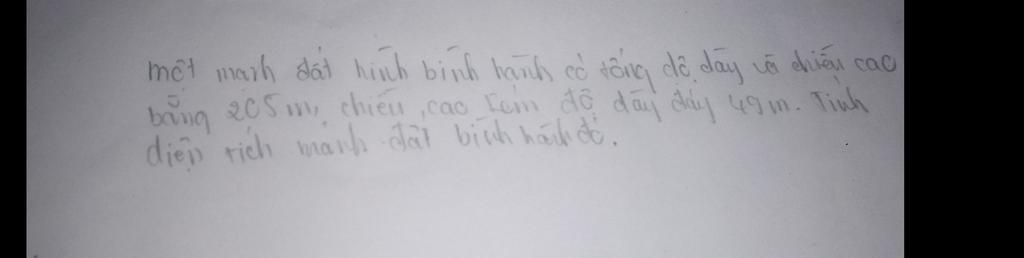 một mảnh đất hình bình hành có tổng độ dày và chiều cao
bằng 205m, chiều cao kém độ dày đáy 49m. Tính
diện tích mảnh đất bình hành đó.